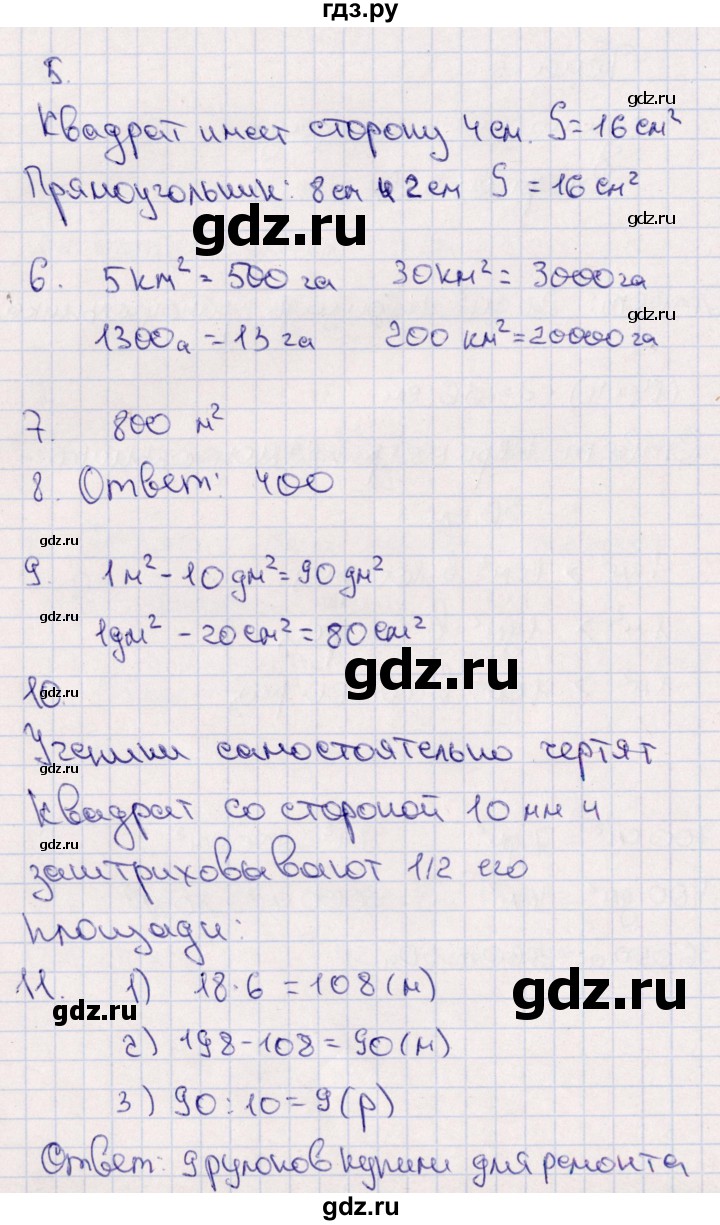 гдз.ру
5.
Квадрат имеет сторону 4 см. S = 16 см²
gdz.ru
Прямоугольник: 8 см и 2 см S = 16 см²
gdz.ru
gdz.ru
6. 5 км² = 500 га 30 км² = 3000 га
1300а = 13 га 200 км² = 20000 га
gdz.ru
7. 800 м²
8. Ответ: 400
gdz.ru
9. 1 м² - 10 дм² = 90 дм²
gdz.ru
1 дм² - 20 см² = 80 см²
gdz.ru
10.
Ученики самостоятельно чертят
gdz.ru
квадрат со стороной 10 мм и
заштриховывают 1/2 его
площади:
11. 1) 18·6 = 108 (м)
gdz.ru
gdz.ru
2) 198-108 = 90 (м)
3) 90:10 = 9 (р)
Ответ: 9 рулонов купили для ремонта
gdz.ru